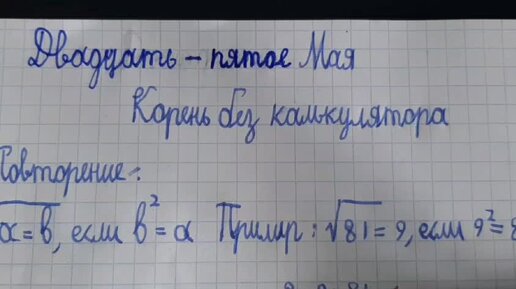 Двадцать - пятое Мая
Корень без калькулятора
Повторение:
a = b, если b² = a Пример: √81 = 9, если 9² = 8